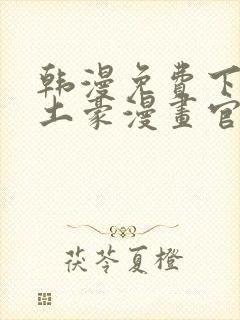 韩漫免费下
土豪漫畫官
茯苓夏橙